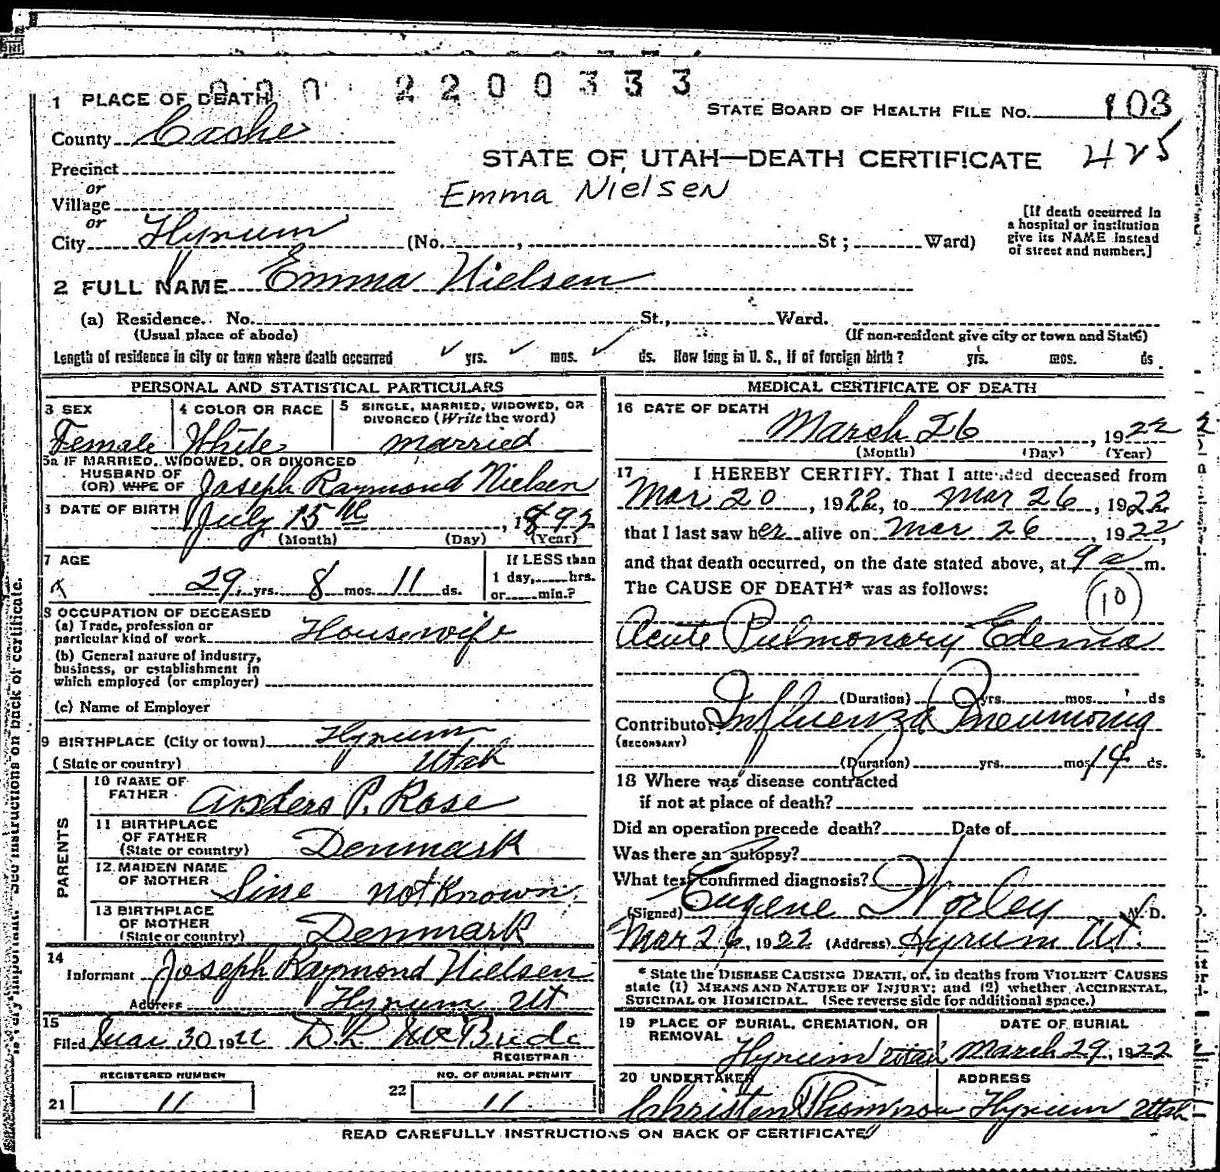 2200333
1 PLACE OF DEATH
STATE BOARD OF HEALTH FILE No. 103
County Cache
STATE OF UTAH—DEATH CERTIFICATE 425
Precinct
or
Village
Emma Nielsen
or
City Hyrum (No. , St ; Ward)
[If death occurred in
a hospital or institution
give its NAME instead
of street and number.]
2 FULL NAME Emma Nielsen
(a) Residence. No. St., Ward.
(Usual place of abode) (If non-resident give city or town and State)
Length of residence in city or town where death occurred yrs. mos. ds. How long in U. S., if of foreign birth? yrs. mos. ds
PERSONAL AND STATISTICAL PARTICULARS
3 SEX
Female
4 COLOR OR RACE
White
5 SINGLE, MARRIED, WIDOWED, OR
DIVORCED (Write the word)
married
5a IF MARRIED, WIDOWED, OR DIVORCED
HUSBAND OF
(OR) WIFE OF Joseph Raymond Nielsen
6 DATE OF BIRTH July 15th, 1892
(Month) (Day) (Year)
7 AGE
29 yrs. 8 mos. 11 ds.
If LESS than
1 day, hrs.
or min.?
8 OCCUPATION OF DECEASED
(a) Trade, profession or
particular kind of work Housewife
(b) General nature of industry,
business, or establishment in
which employed (or employer)
(c) Name of Employer
9 BIRTHPLACE (City or town) Hyrum
(State or country) Utah
PARENTS
10 NAME OF
FATHER Anders P. Rose
11 BIRTHPLACE
OF FATHER
(State or country) Denmark
12 MAIDEN NAME
OF MOTHER Sine not Known
13 BIRTHPLACE
OF MOTHER
(State or country) Denmark
14
Informant Joseph Raymond Nielsen
Address Hyrum Ut
15
Filed Mar 30 1922 D R McBride
REGISTRAR
REGISTERED NUMBER
21 11
NO. OF BURIAL PERMIT
22 11
MEDICAL CERTIFICATE OF DEATH
16 DATE OF DEATH
March 26, 1922
(Month) (Day) (Year)
17 I HEREBY CERTIFY, That I attended deceased from
Mar 20, 1922, to Mar 26, 1922
that I last saw her alive on Mar 26, 1922,
and that death occurred, on the date stated above, at 9 a m.
The CAUSE OF DEATH* was as follows:
10
Acute Pulmonary Edema
(Duration) yrs. mos. ds
Contributory Influenza Pneumonia
(SECONDARY)
(Duration) yrs. mos 14 ds.
18 Where was disease contracted
if not at place of death?
Did an operation precede death? Date of
Was there an autopsy?
What test confirmed diagnosis?
(Signed) Eugene Worley M. D.
Mar 26, 1922 (Address) Hyrum Ut.
* State the DISEASE CAUSING DEATH, or, in deaths from VIOLENT CAUSES
state (1) MEANS AND NATURE OF INJURY; and (2) whether ACCIDENTAL,
SUICIDAL OR HOMICIDAL. (See reverse side for additional space.)
19 PLACE OF BURIAL, CREMATION, OR
REMOVAL
Hyrum Utah
DATE OF BURIAL
March 29, 1922
20 UNDERTAKER
Christen Thompson
ADDRESS
Hyrum Utah
READ CAREFULLY INSTRUCTIONS ON BACK OF CERTIFICATE
very important. See instructions on back of certificate.